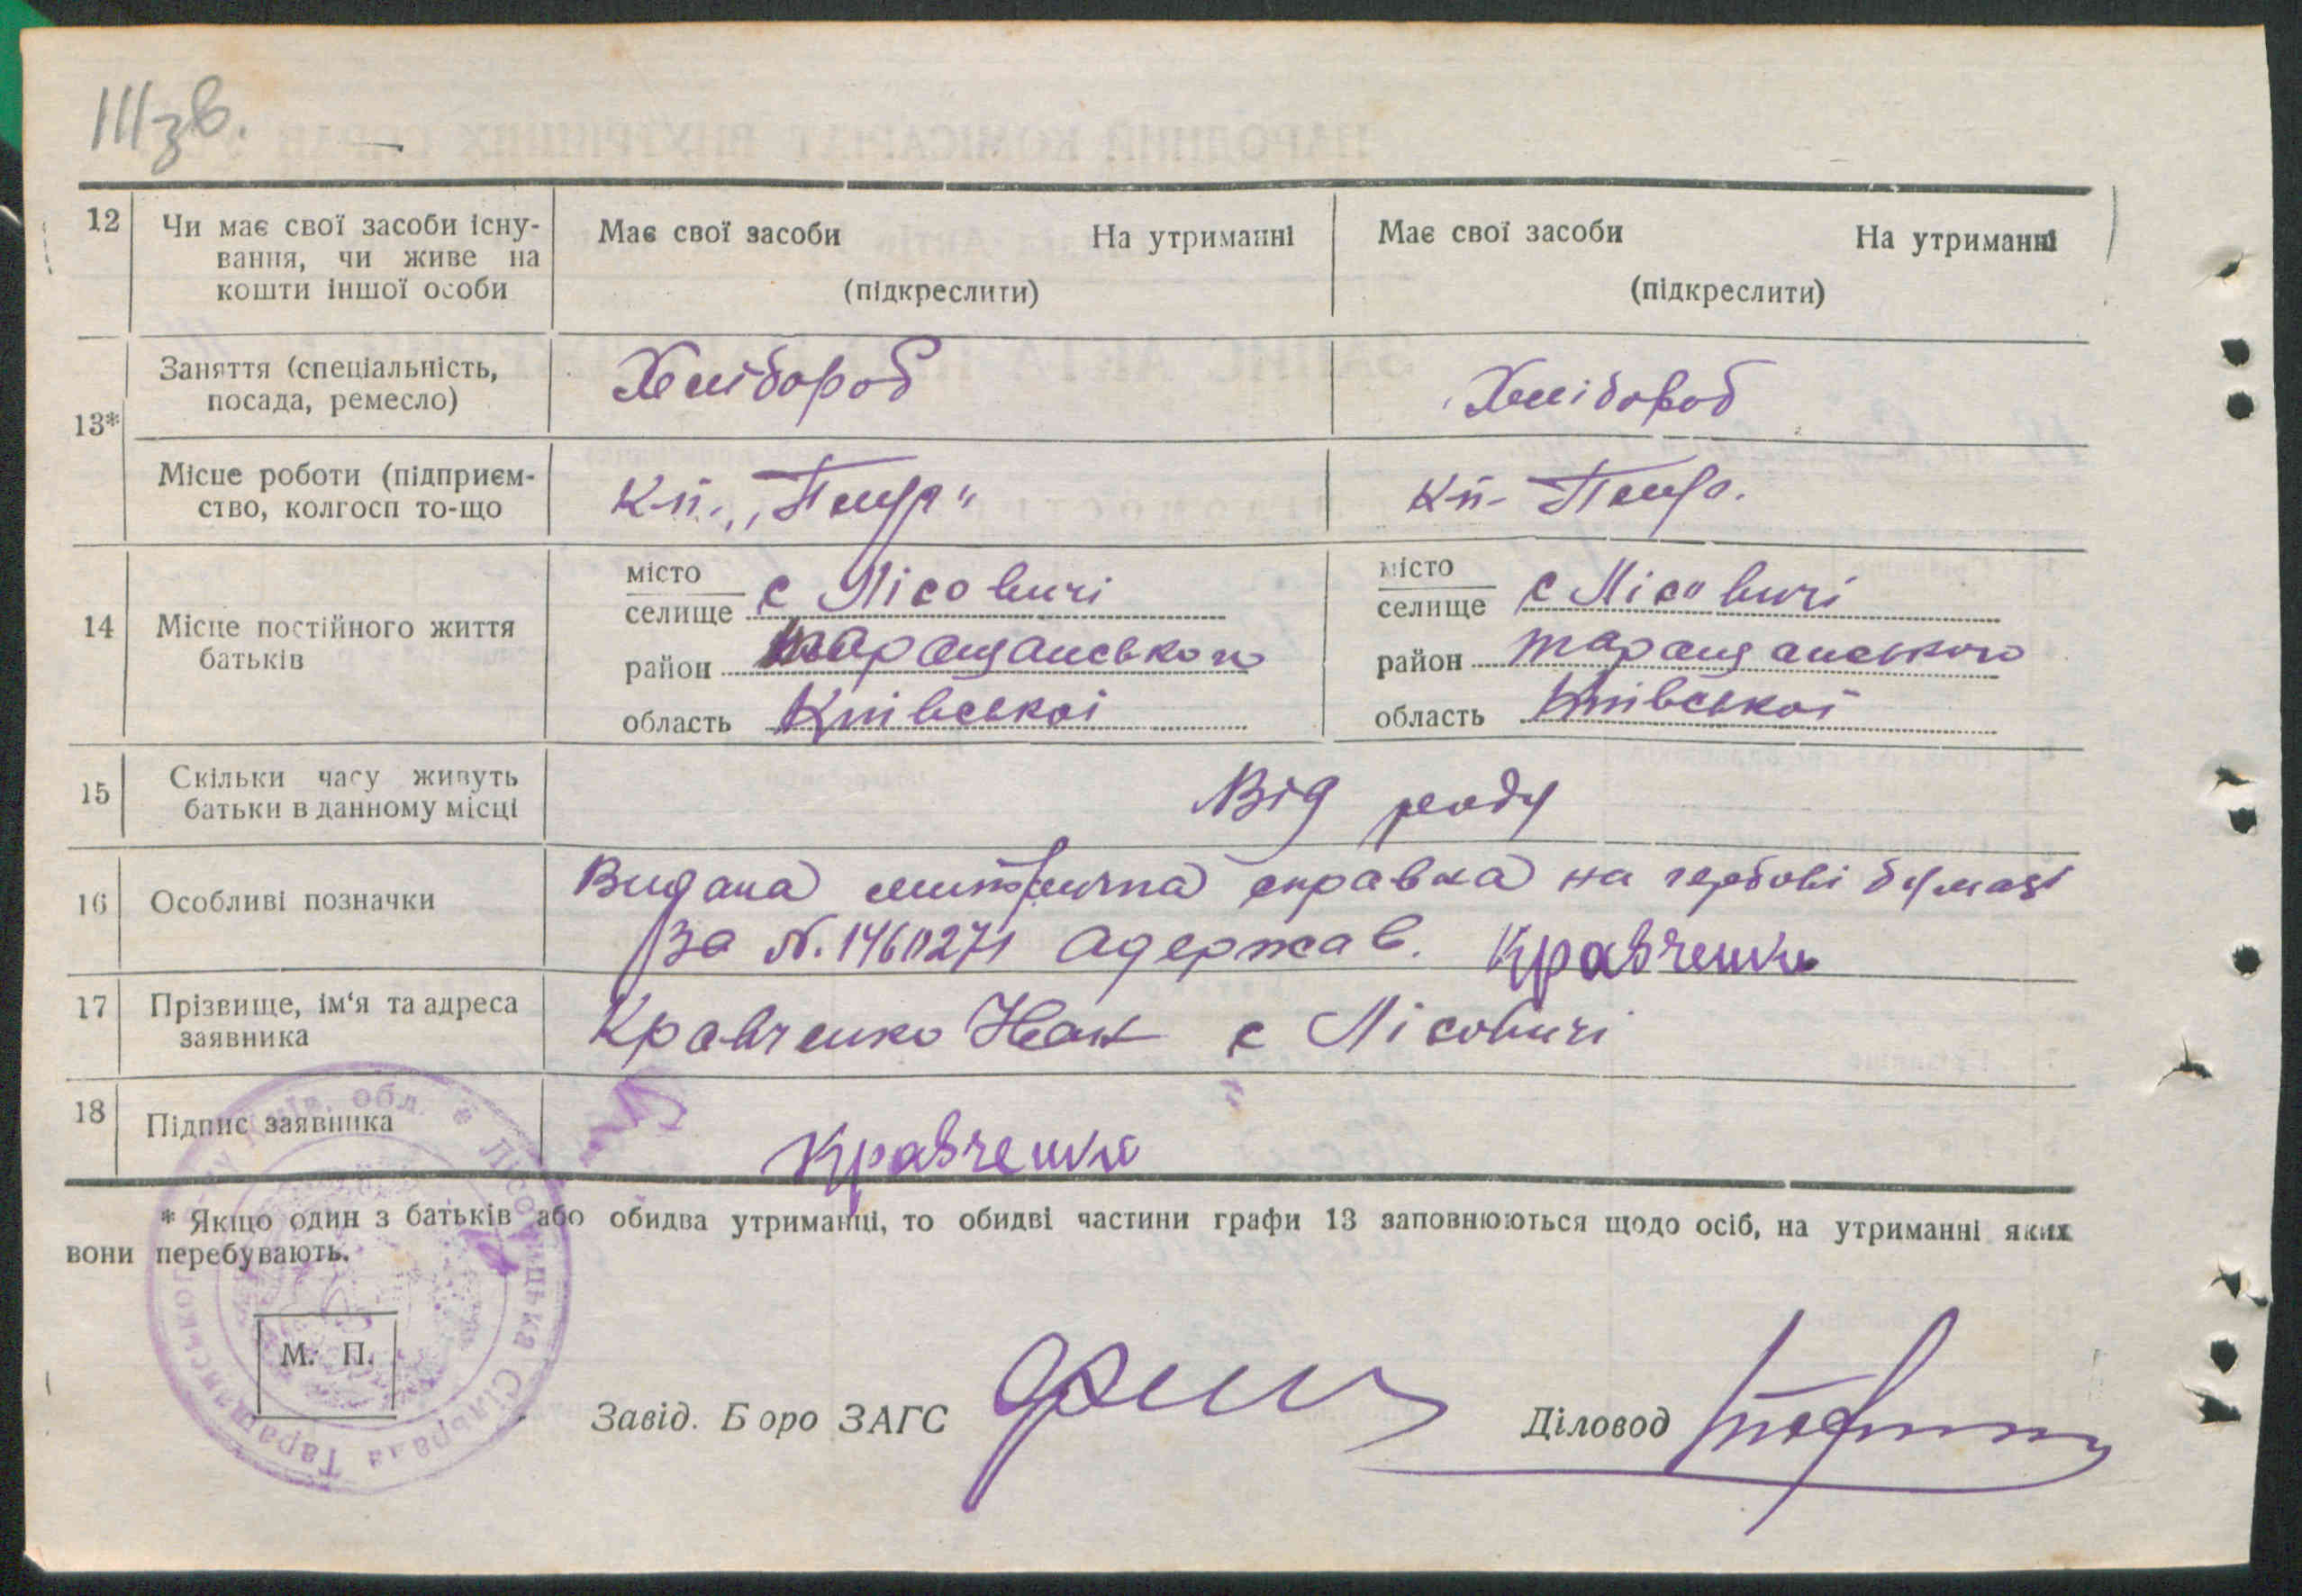 111 зв.
12 Чи має свої засоби існу-
вання, чи живе на
кошти іншої особи
Має свої засоби На утриманні
(підкреслити)
Має свої засоби На утриманні
(підкреслити)
13* Заняття (спеціальність,
посада, ремесло)
Хлібороб
Хлібороб
Місце роботи (підприєм-
ство, колгосп то-що
К-п.
К-п-
14 Місце постійного життя
батьків
місто
селище с Лісовичі
район таращанського
область Київської
місто
селище с Лісовичі
район таращанського
область Київської
15 Скільки часу живуть
батьки в данному місці
Від роду
16 Особливі позначки
Видана справка на гербові бумазі
За №. 1460271 Адержав. Кравченко
17 Прізвище, ім'я та адреса
заявника
Кравченко с Лісовичі
18 Підпис заявника
Кравченко
* Якщо один з батьків або обидва утриманці, то обидві частини графи 13 заповнюються щодо осіб, на утриманні яких
вони перебувають.
Лісовицька Сільрада Таращанського р-ну Київ. обл.
М. П.
Завід. Б оро ЗАГС
Діловод